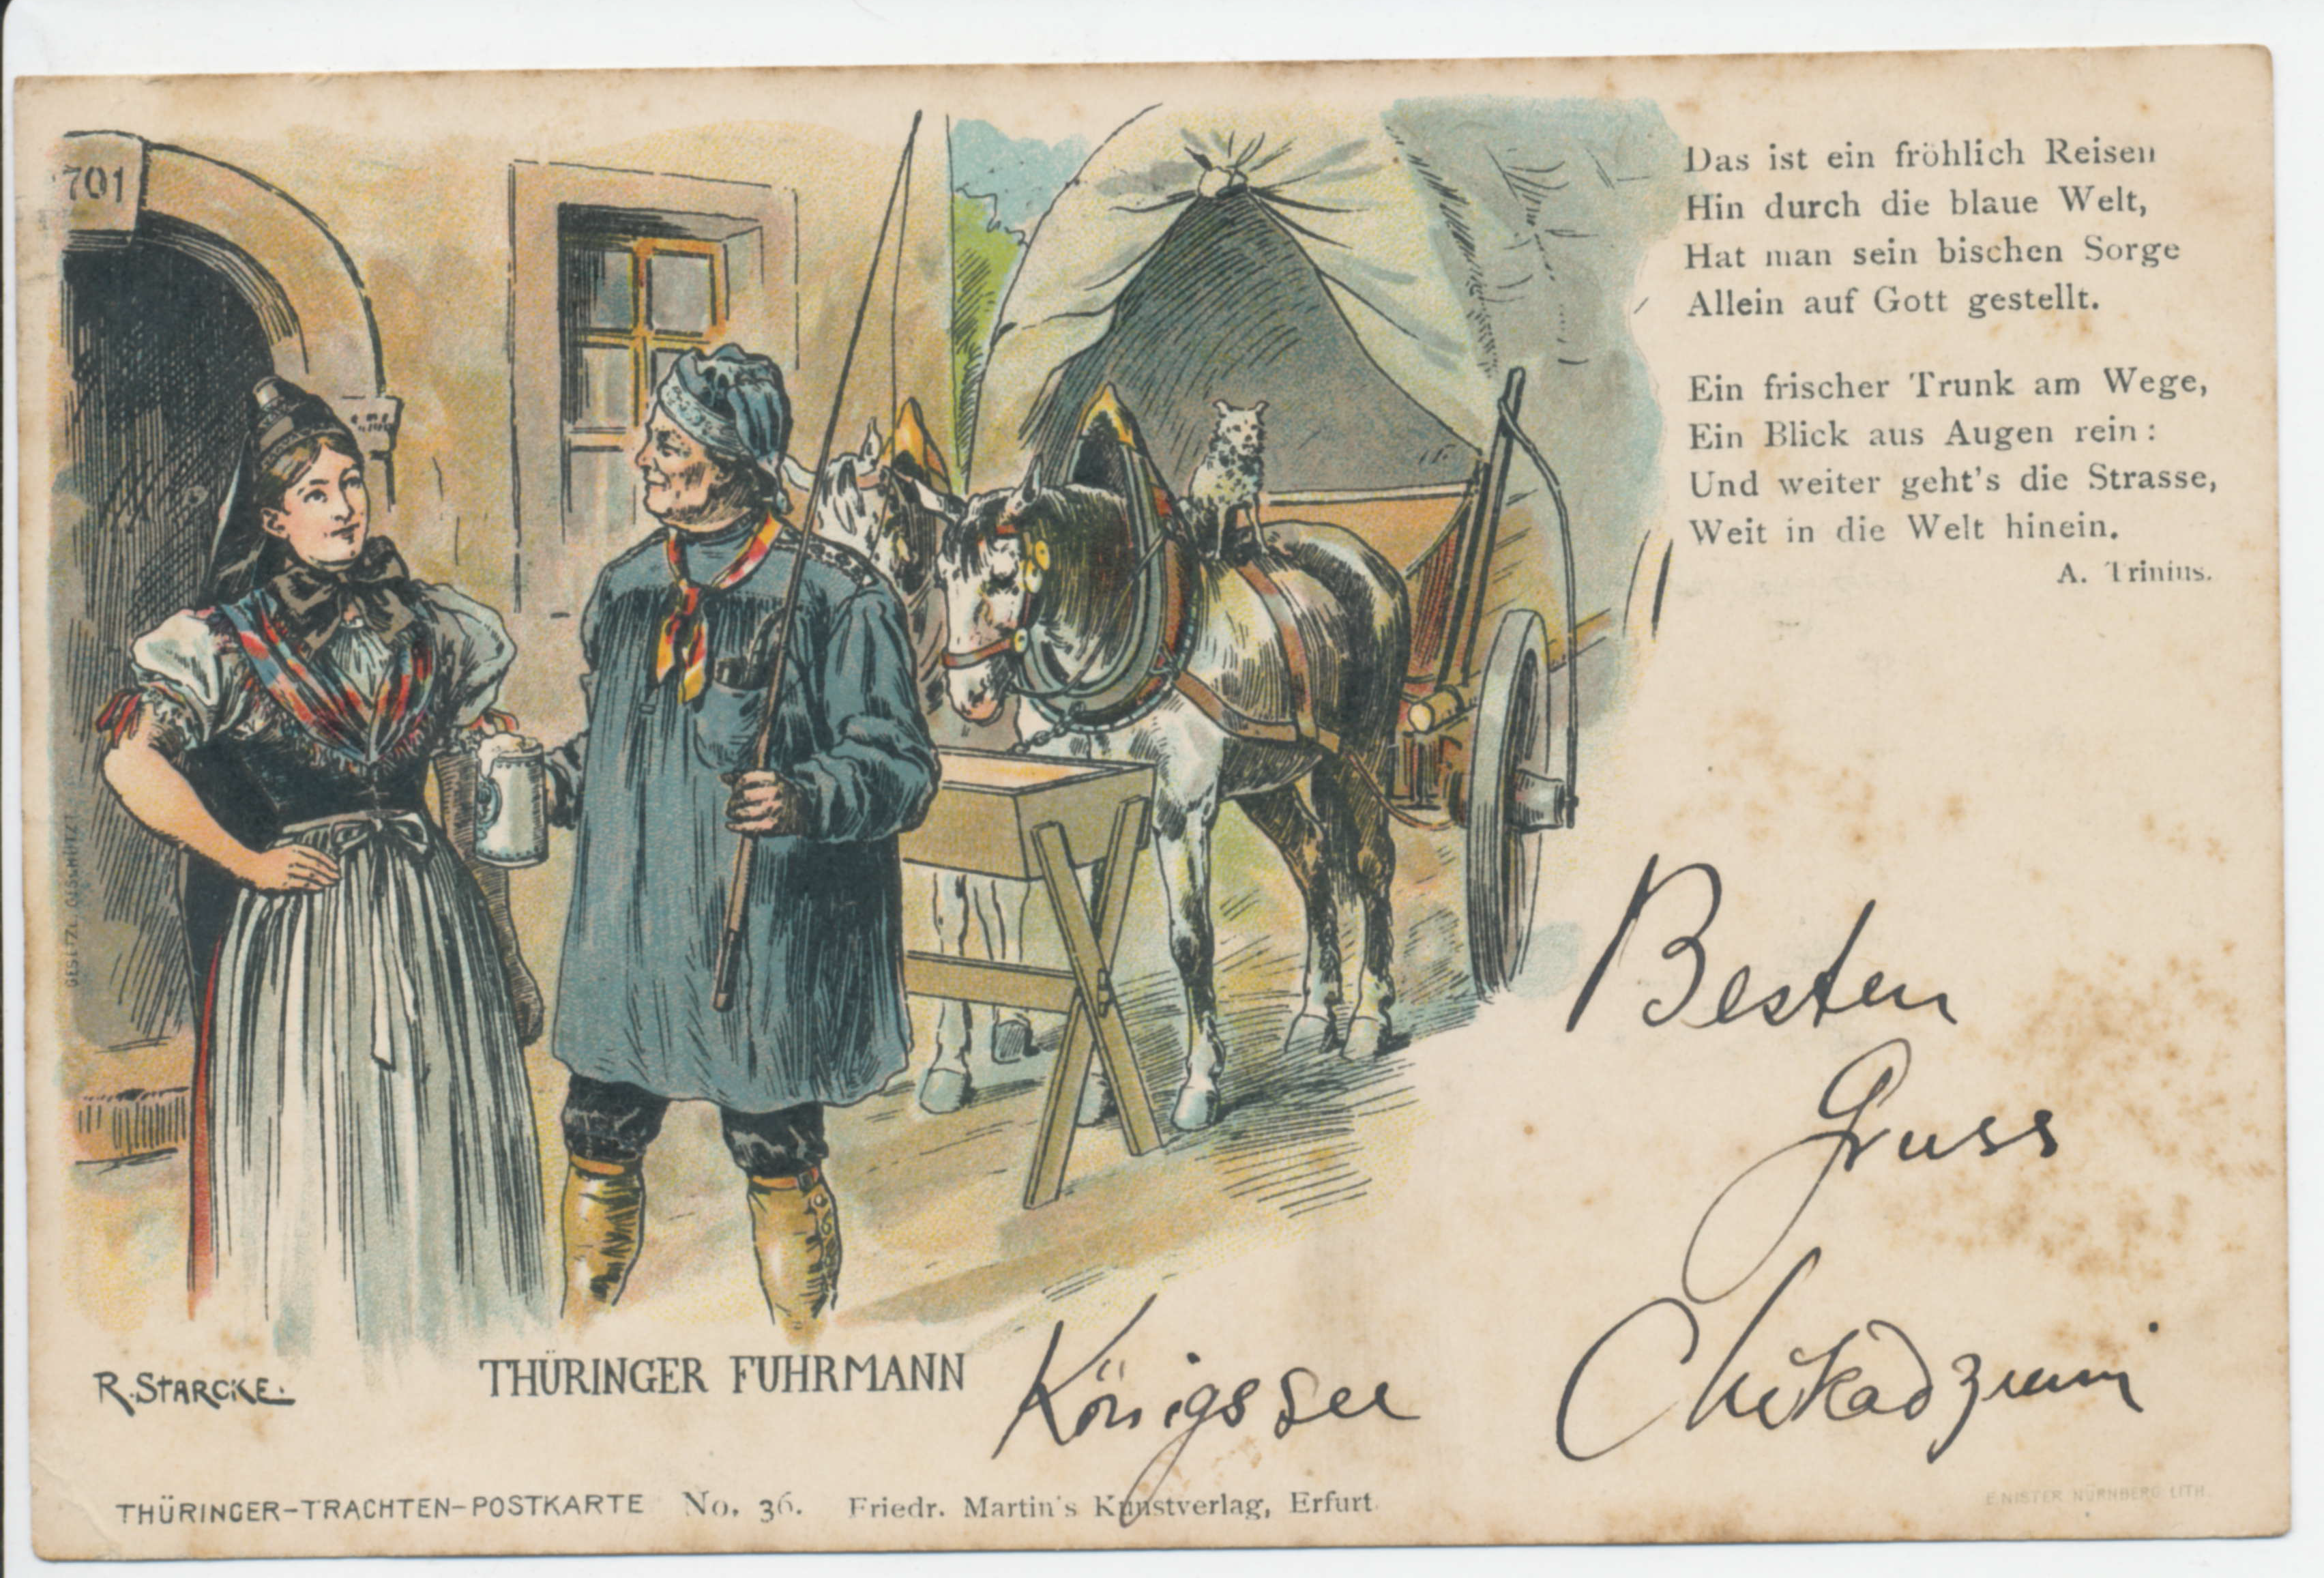 701
Das ist ein fröhlich Reisen
Hin durch die blaue Welt,
Hat man sein bischen Sorge
Allein auf Gott gestellt.
Ein frischer Trunk am Wege,
Ein Blick aus Augen rein:
Und weiter geht's die Strasse,
Weit in die Welt hinein.
A. Trinius.
GESETZL. GESCHÜTZT
Besten
Gruss
Chikadzumi
Königssee
R. STARCKE.
THÜRINGER FUHRMANN
THÜRINGER-TRACHTEN-POSTKARTE No. 36. Friedr. Martin's Kunstverlag, Erfurt.
E. NISTER NÜRNBERG LITH.